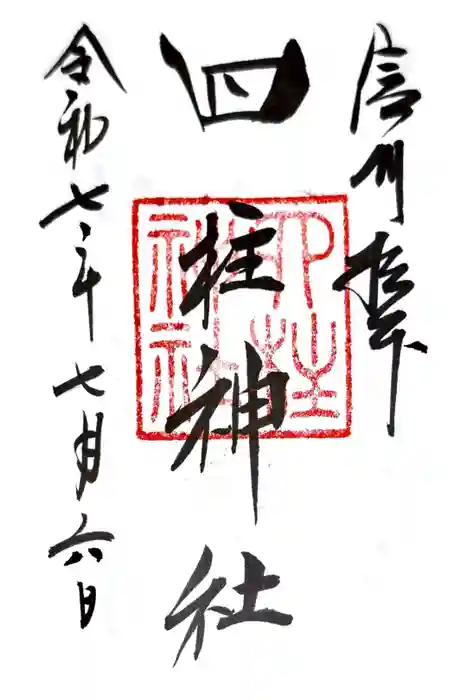 信州松本
四柱神社
四柱
神社
令和七年七月六日